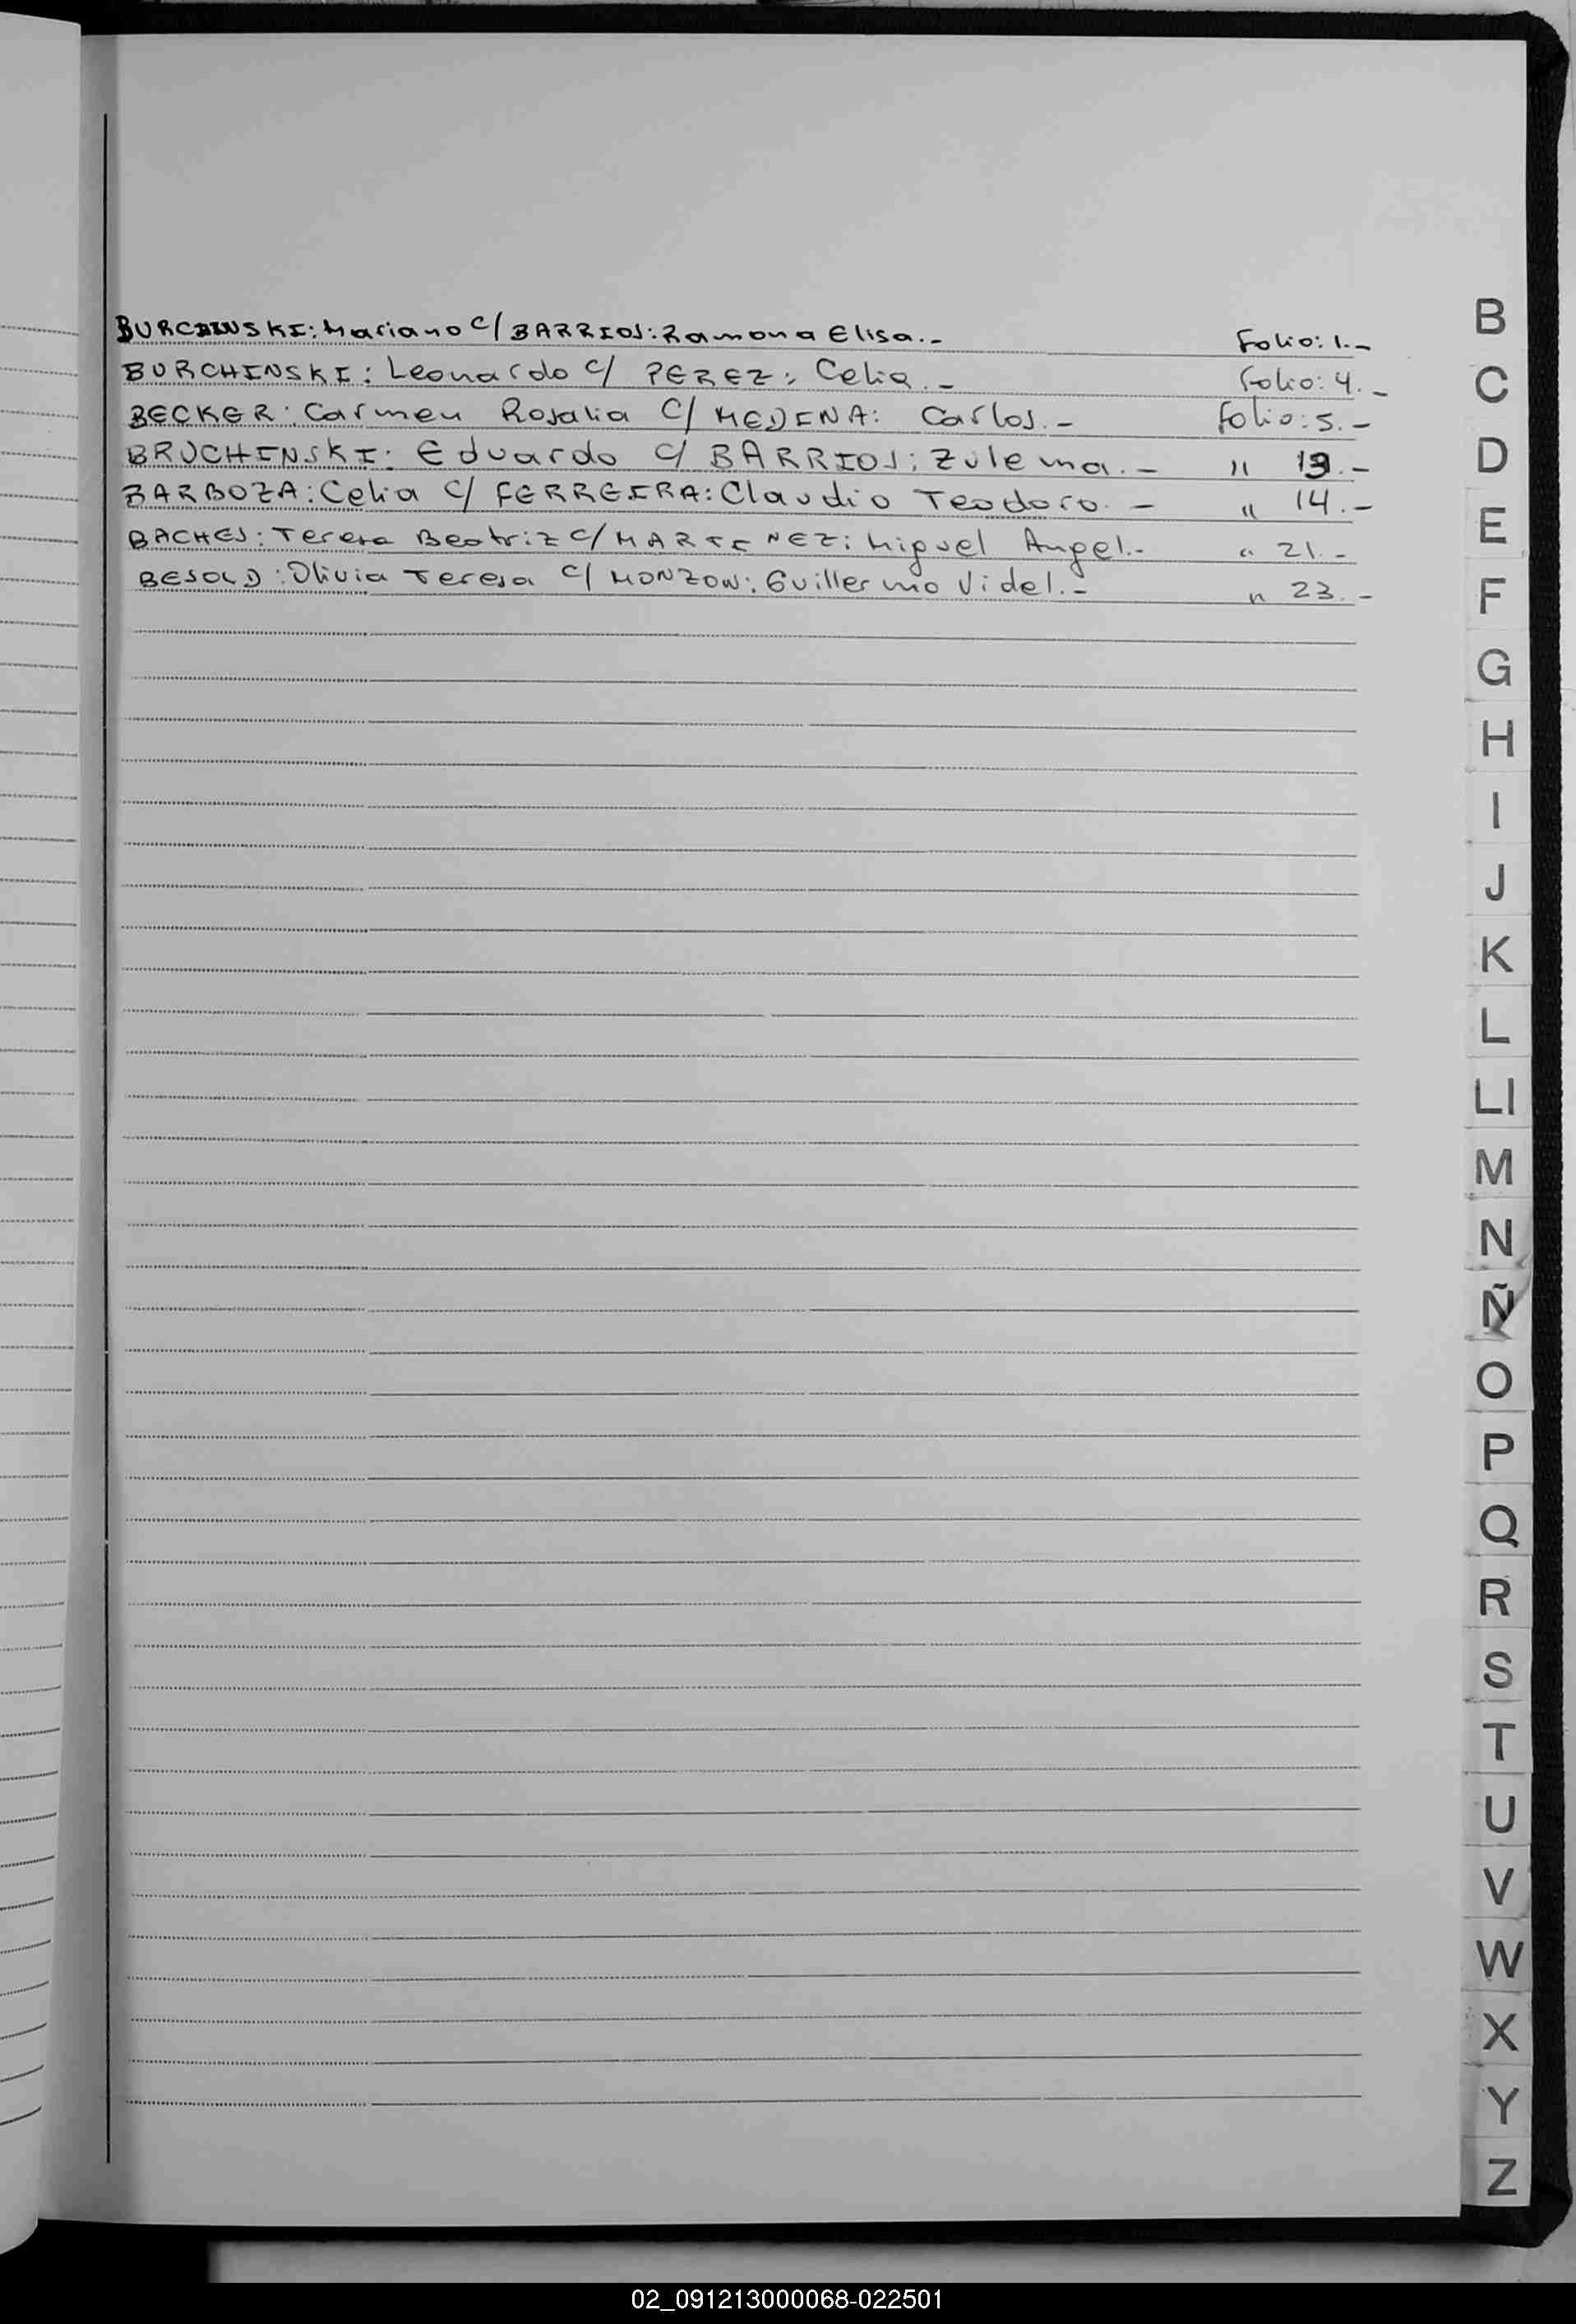 BURCHINSKI: Mariano c/ BARRIOS: Ramona Elisa.- Folio: 1.-
BURCHINSKI: Leonardo c/ PEREZ: Celia.- Folio: 4.-
BECKER: Carmen Rosalia c/ MEDINA: Carlos.- Folio: 5.-
BRUCHINSKI: Eduardo c/ BARRIOS: Zulema.- " 13.-
BARBOZA: Celia c/ FERREIRA: Claudio Teodoro.- " 14.-
BACHES: Teresa Beatriz c/ MARTINEZ: Miguel Angel.- " 21.-
BESOLD: Olivia Teresa c/ MONZON: Guillermo Videl.- " 23.-
B
C
D
E
F
G
H
I
J
K
L
Ll
M
N
Ñ
O
P
Q
R
S
T
U
V
W
X
Y
Z
02_091213000068-022501